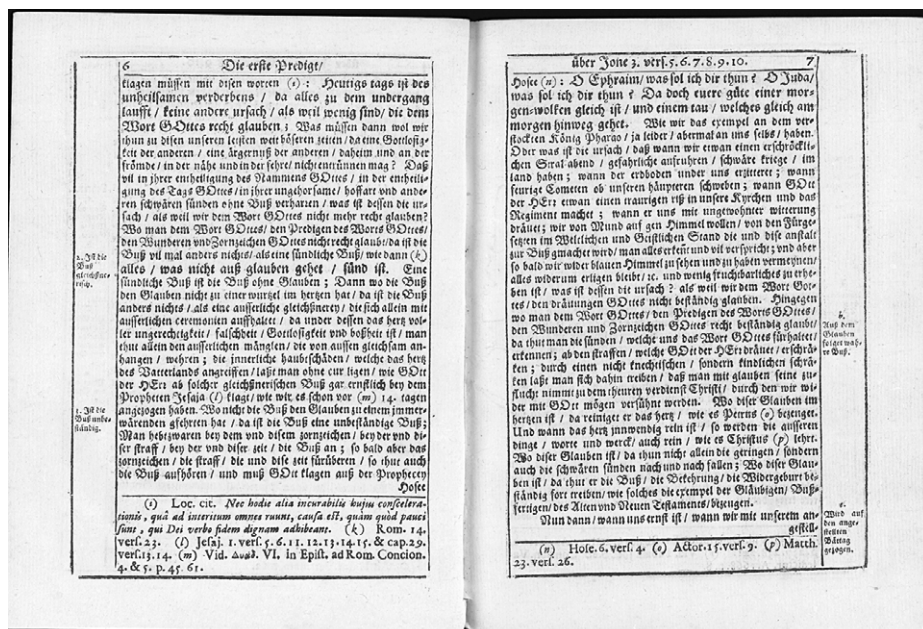 6 Die erste Predigt/
klagen müssen mit disen worten (i) : Heutigs tags ist des
unheilsamen verderbens / da alles zu dem undergang
laufft / keine andere ursach / als weil wenig sind / die dem
Wort GOttes recht glauben ; Was müssen dann wol wir
thun zu disen unseren letsten weit böseren zeiten / da eine Gottlosig-
keit der anderen / eine ärgernuß der anderen / daheim und an der
frömde / in der nähe und in der fehre / nicht entrünnen mag ? Daß
vil in ihrer entheiligung des Nammens GOttes / in der entheili-
gung des Tags GOttes / in ihrer ungehorsame / hoffart und ande-
ren schwären sünden ohne Buß verharren / was ist dessen die ur-
sach / als weil wir dem Wort GOttes nicht mehr recht glauben?
Wo man dem Wort GOttes / den Predigen des Worts GOttes /
den Wunderen und Zornzeichen GOttes nicht recht glaubt / da ist die
Buß vil mal anders nichts / als eine sündliche Buß / wie dann (k)
alles / was nicht auß glauben gehet / sünd ist. Eine
sündliche Buß ist die Buß ohne Glauben ; Dann wo die Buß
den Glauben nicht zu einer wurtzel im hertzen hat / da ist die Buß
anders nichts / als eine ausserliche gleichßnerey / die sich allein mit
ausserlichen ceremonien auffhaltet / da under dessen das hertz vol-
ler ungerechtigkeit / falschheit / Gottlosigkeit und boßheit ist / man
thut allein den ausserlichen mänglen / die von aussen gleichsam an-
hangen / wehren ; die innerliche haubtschäden / welche das hertz
des Vatterlands angreiffen / laßt man ohne cur ligen / wie GOtt
der HErr ab solcher gleichßnerischen Buß gar ernstlich bey dem
Propheten Jesaja (l) klagt / wie wir es schon vor (m) 14. tagen
angezogen haben. Wo nicht die Buß den Glauben zu einem immer-
währenden gfehrten hat / da ist die Buß eine unbeständige Buß;
Man hebt zwaren bey dem und disem zornzeichen / bey der und di-
ser straff / bey der und diser zeit / die Buß an ; so bald aber das
zornzeichen / die straff / die und dise zeit fürüberen / so thut auch
die Buß aufhören / und muß GOtt klagen auß der Prophecey
Hosee
2. Ist die
Buß
gleichßne-
risch.
3. Ist die
Buß unbe-
ständig.
(i) Loc. cit. Nec hodie alia incurabilis hujus conscelera-
tionis, quâ ad interitum omnes ruunt, causa est, quàm quod pauci
sunt, qui Dei verbo fidem dignam adhibeant. (k) Rom. 14.
vers. 23. (l) Jesaj. 1. vers. 5. 6. 11. 12. 13. 14. 15. & cap. 29.
vers. 13. 14. (m) Vid. VI. in Epist. ad Rom. Concion.
4. & 5. p. 45. 61.
über Jone 3. vers. 5. 6. 7. 8. 9. 10. 7
Hosee (n) : O Ephraim / was sol ich dir thun ? O Juda /
was sol ich dir thun ? Da doch euere güte einer mor-
gen-wolken gleich ist / und einem tau / welches gleich am
morgen hinweg gehet. Wie wir das exempel an dem ver-
stockten König Pharao / ja leider / abermal an uns selbs / haben.
Oder was ist die ursach / daß wann wir etwan einen erschröckli-
chen Stral abend / gefahrliche aufruhren / schwäre kriege / im
land haben ; wann der erdboden under uns erzitteret ; wann
feurige Cometen ob unseren häupteren schweben ; wann GOtt
der HErr etwan einen traurigen riß in unsere Kyrchen und das
Regiment machet ; wann er uns mit ungewohnter witterung
dräuet ; wir von Mund auf gen Himmel wollen / von den Fürge-
setzten im Weltlichen und Geistlichen Stand die und dise anstalt
zur Buß gmachet wird / man alles erkent und vil verspricht ; und aber
so bald wir wider blauen Himmel zu sehen und zu haben vermeynen /
alles widerum erligen bleibt / ꝛc. und wenig fruchtbarliches zu erhe-
ben ist / was ist dessen die ursach ? als weil wir dem Wort Got-
tes / den dräuungen GOttes nicht beständig glauben. Hingegen
wo man dem Wort GOttes / den Predigen des Worts GOttes /
den Wunderen und Zornzeichen GOttes recht beständig glaubt /
da thut man die sünden / welche uns das Wort GOttes fürhaltet /
erkennen ; ab den straffen / welche GOtt der HErr dräuet / erschrä-
ken ; durch einen nicht knechtischen / sondern kindlichen schrä-
ken laßt man sich dahin treiben / daß man mit glauben seine zu-
flucht nimmt zu dem theuren verdienst Christi / durch den wir wi-
der mit GOtt mögen versühnt werden. Wo diser Glauben im
hertzen ist / da reiniget er das hertz / wie es Petrus (o) bezeuget.
Und wann das hertz innwendig rein ist / so werden die ausseren
dinge / worte und werck / auch rein / wie es Christus (p) lehrt.
Wo diser Glauben ist / da thun nicht allein die geringen / sondern
auch die schwären sünden nach und nach fallen ; Wo diser Glau-
ben ist / da thut er die Buß / die Bekehrung / die Widergeburt be-
ständig fort treiben / wie solches die exempel der Gläubigen / Buß-
fertigen / des Alten und Neuen Testaments / bezeugen.
Nun dann / wann uns ernst ist / wann wir mit unserem an-
gestell-
Auß dem
Glauben
folget wah-
re Buß.
Wird auf
den ange-
stellten
Bättag
gezogen.
(n) Hose. 6. vers. 4. (o) Actor. 15. vers. 9. (p) Matth.
23. vers. 26.